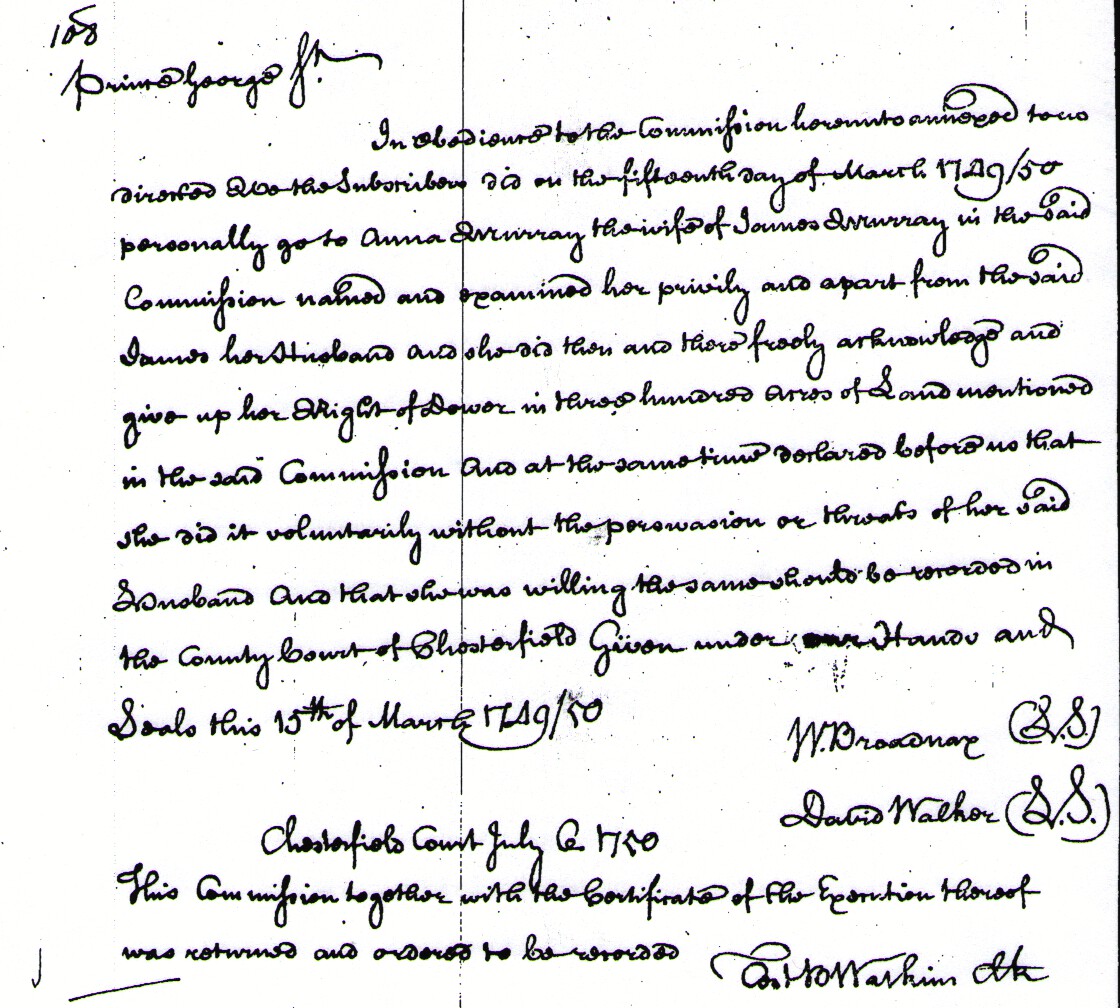 108
Prince George Sct.
In obedience to the Commission hereunto annexed to us
directed We the Subscribers did on the fifteenth day of March 1749/50
personally go to Anna Murray the wife of James Murray in the said
Commission named and examined her privily and apart from the said
James her Husband and she did then and there freely acknowledge and
give up her Right of Dower in three hundred Acres of Land mentioned
in the said Commission And at the same time declared before us that
she did it voluntarily without the perswasion or threats of her said
Husband And that she was willing the same should be recorded in
the County Court of Chesterfield Given under our Hands and
Seals this 15th of March 1749/50
W. Broadnax (L.S.)
David Walker (L.S.)
Chesterfield Court July 6. 1750
This Commission together with the Certificate of the Execution thereof
was returned and ordered to be recorded
Test B Watkins Clk